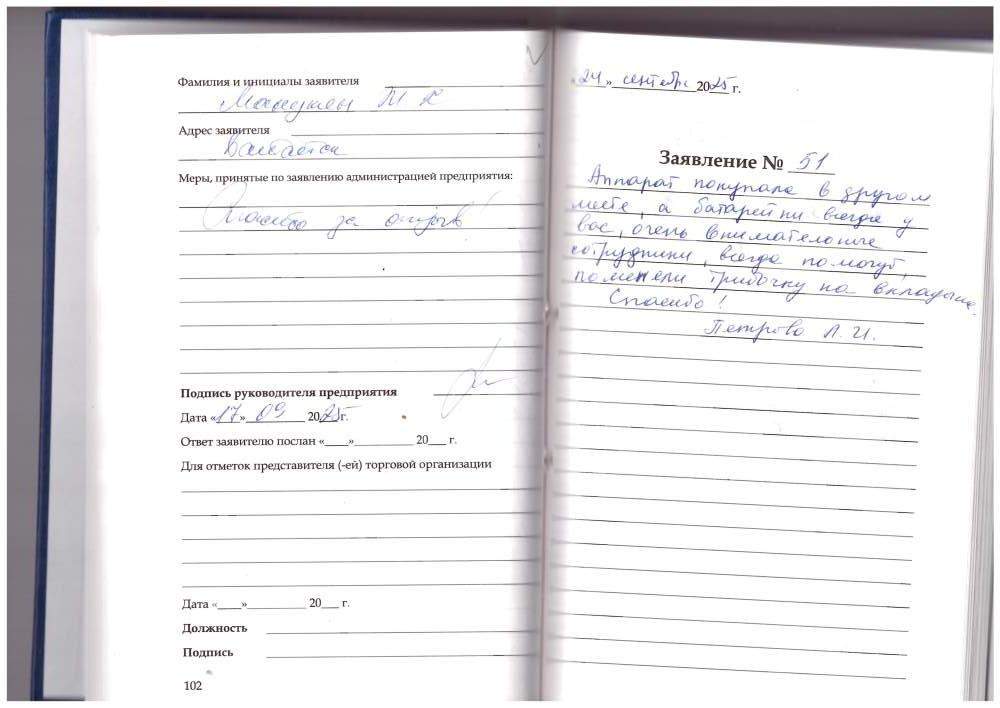 Фамилия и инициалы заявителя
М Х
Адрес заявителя
Меры, принятые по заявлению администрацией предприятия:
Спасибо за отзыв!
Подпись руководителя предприятия
Дата «17» 09 2025г.
Ответ заявителю послан «___»__________ 20___ г.
Для отметок представителя (-ей) торговой организации
Дата «____»__________ 20___ г.
Должность
Подпись
102
«24» сентябр 2025 г.
Заявление № 51
Аппарат покупала в другом
месте, а батарейки всегда у
вас, очень внимательные
сотрудники, всегда помогут,
поменяли трубочку на вкладыше.
Спасибо!
Петрова Л. И.